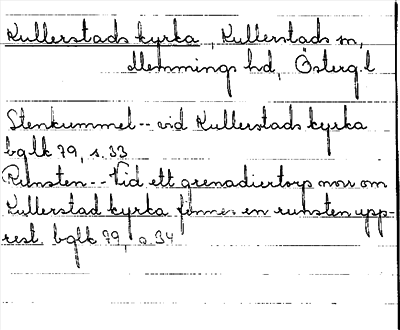 Kullerstads kyrka, Kullerstads sn,
Memmings hd, Österg.l
Stenkummel -- vid Kullerstads kyrka
bglk 79, s. 33
Runsten -- Vid ett grenadiertorp norr om
Kullerstad kyrka finnes en runsten upp-
rest. bglk 79, s. 34